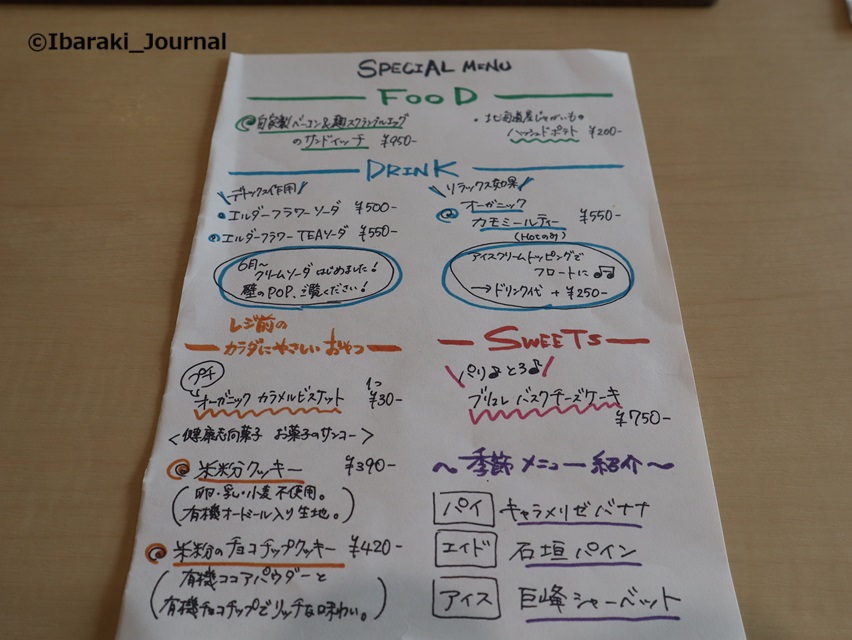 ©Ibaraki_Journal
SPECIAL MENU
FOOD
自家製ベーコン&麹スクランブルエッグ
のサンドイッチ ¥950-
・北海道産じゃがいも
ハッシュドポテト ¥200-
DRINK
デトックス作用
エルダーフラワーソーダ ¥500-
エルダーフラワーTEAソーダ ¥550-
6月〜
クリームソーダはじめました!
壁のPOP、ご覧ください!
リラックス効果
オーガニック
カモミールティー ¥550-
(Hotのみ)
アイスクリームトッピングで
フロートに♫
→ドリンク代 + ¥250-
レジ前の
カラダにやさしいおやつ
プチ
オーガニック カラメルビスケット 1つ ¥30-
<健康志向菓子 お菓子のサンコー>
米粉クッキー ¥390-
(卵・乳・小麦不使用。
有機オートミール入り生地。)
米粉のチョコチップクッキー ¥420-
(有機ココアパウダーと
有機チョコチップでリッチな味わい。)
SWEETS
パリ♪とろ♪
ブリュレ バスクチーズケーキ
¥750-
〜季節メニュー紹介〜
パイ キャラメリゼバナナ
エイド 石垣パイン
アイス 巨峰シャーベット